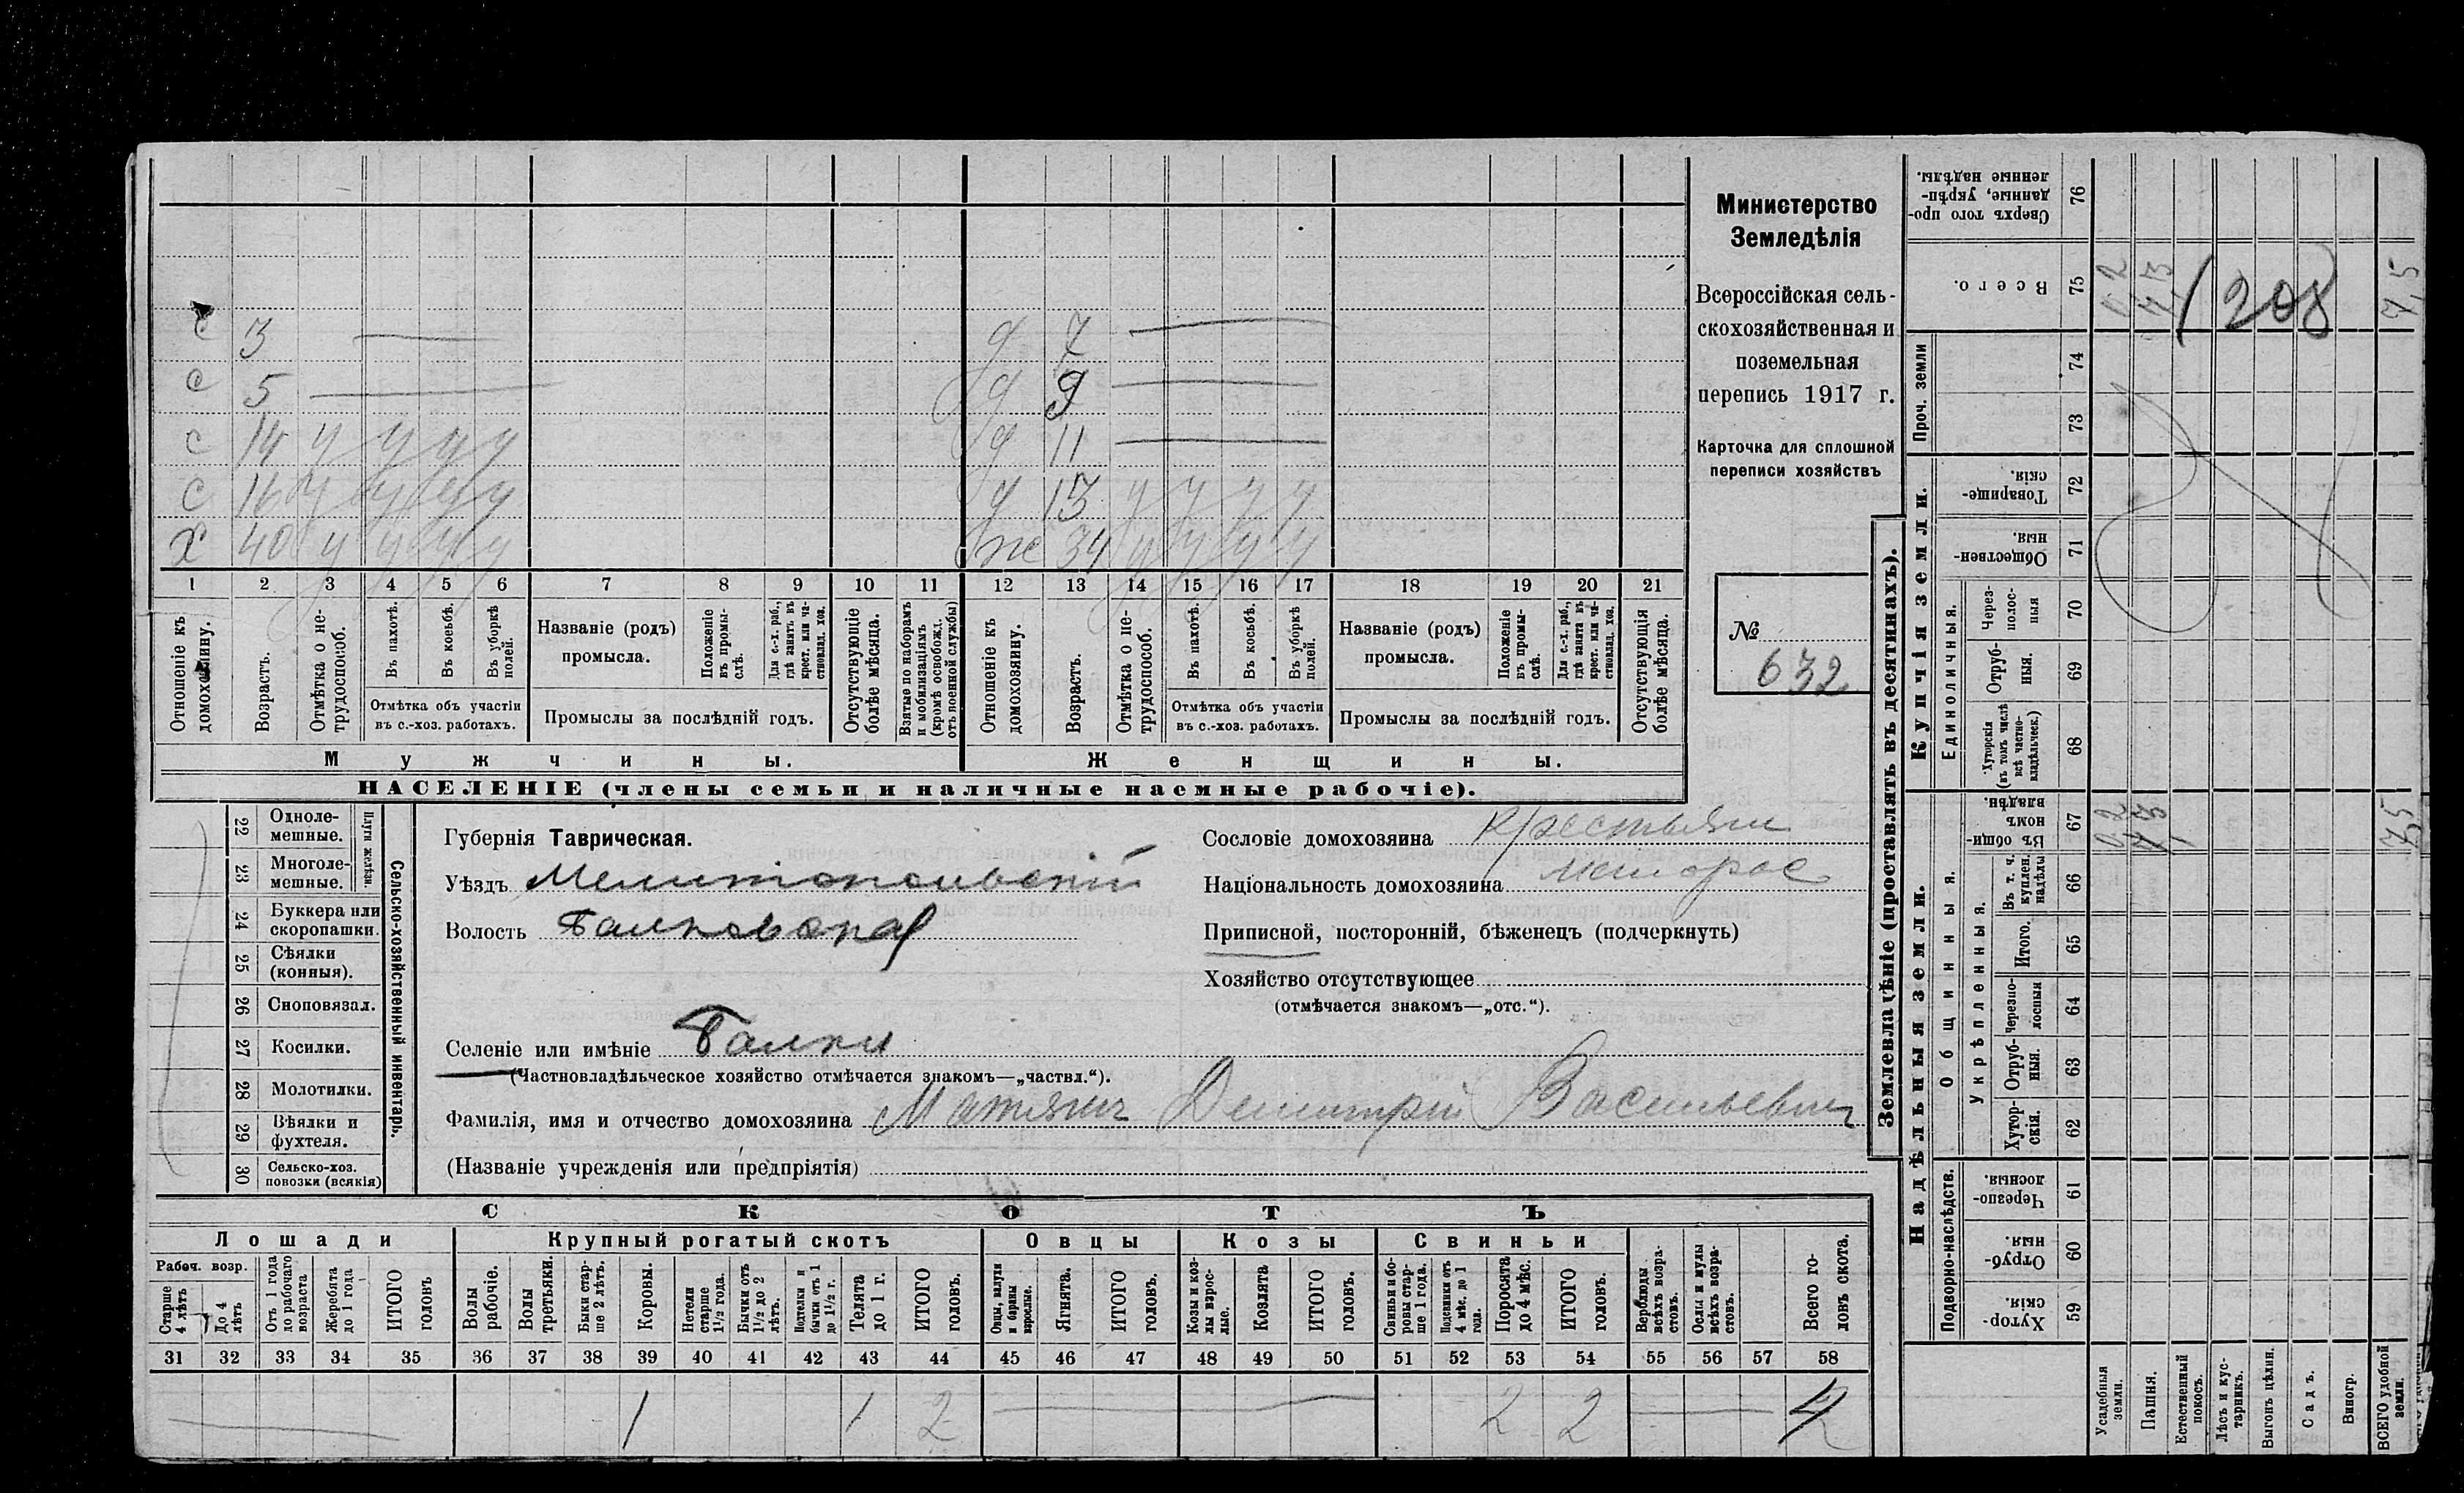 с 3 — д 7 —
с 5 — д 9 —
с 14 у у у у д 11 —
с 16 у у у у д 13 у у у у
х 40 у у у у ж 34 у у у у
1 2 3 4 5 6 7 8 9 10 11 12 13 14 15 16 17 18 19 20 21
Отношеніе къ домохозяину.
Возрастъ.
Отмѣтка о нетрудоспособ.
Въ пахотѣ.
Въ косьбѣ.
Въ уборкѣ полей.
Отмѣтка объ участіи
въ с.-хоз. работахъ.
Названіе (родъ)
промысла.
Положеніе въ промыслѣ.
Для с.-х. раб., гдѣ занятъ въ крест. или частновлад. хоз.
Промыслы за послѣдній годъ.
Отсутствующіе болѣе мѣсяца.
Взятые по наборамъ и мобилизаціямъ (кромѣ освобожд. отъ военной службы)
Отношеніе къ домохозяину.
Возрастъ.
Отмѣтка о нетрудоспособ.
Въ пахотѣ.
Въ косьбѣ.
Въ уборкѣ полей.
Отмѣтка объ участіи
въ с.-хоз. работахъ.
Названіе (родъ)
промысла.
Положеніе въ промыслѣ.
Для с.-х. раб., гдѣ занята въ крест. или частновлад. хоз.
Промыслы за послѣдній годъ.
Отсутствующія болѣе мѣсяца.
Мужчины.
Женщины.
НАСЕЛЕНІЕ (члены семьи и наличные наемные рабочіе).
Министерство
Земледѣлія
Всероссійская сель-
скохозяйственная и
поземельная
перепись 1917 г.
Карточка для сплошной
переписи хозяйствъ
№
632
22 Одноле-
мешные.
23 Многоле-
мешные.
Плуги желѣзн.
24 Буккера или
скоропашки.
25 Сѣялки
(конныя).
26 Сноповязал.
27 Косилки.
28 Молотилки.
29 Вѣялки и
фухтеля.
30 Сельско-хоз.
повозки (всякія)
Сельско-хозяйственный инвентарь.
Губернія Таврическая.
Уѣздъ Мелитопольскій
Волость Балковская
Селеніе или имѣніе Балки
(Частновладѣльческое хозяйство отмѣчается знакомъ—„частвл.“).
Фамилія, имя и отчество домохозяина Дмитрій Васильевич
(Названіе учрежденія или предпріятія)
Сословіе домохозяина крестьян
Національность домохозяина малорос
Приписной, посторонній, бѣженецъ (подчеркнуть)
Хозяйство отсутствующее
(отмѣчается знакомъ—„отс.“).
СКОТЪ
Лошади
Крупный рогатый скотъ
Овцы
Козы
Свиньи
Рабоч. возр.
Старше 4 лѣтъ
До 4 лѣтъ
Отъ 1 года до рабочаго возраста
Жеребята до 1 года
ИТОГО головъ
Волы рабочіе.
Волы третьяки.
Быки старше 2 лѣтъ.
Коровы.
Нетели старше 1½ года.
Бычки отъ 1½ до 2 лѣтъ.
Подтелки и бычки отъ 1 до 1½ г.
Телята до 1 г.
ИТОГО головъ.
Овцы, валухи и бараны взрослые.
Ягнята.
ИТОГО головъ.
Козы и козлы взрослые.
Козлята
ИТОГО головъ.
Свиньи и боровы старше 1 года.
Подсвинки отъ 4 мѣс. до 1 года.
Поросята до 4 мѣс.
ИТОГО головъ.
Верблюды всѣхъ возрастовъ.
Ослы и мулы всѣхъ возрастовъ.
Всего головъ скота.
31 32 33 34 35 36 37 38 39 40 41 42 43 44 45 46 47 48 49 50 51 52 53 54 55 56 57 58
— 1 1 2 — 2 2 — 4
Землевладѣніе (проставлять въ десятинахъ).
Надѣльныя земли.
Купчія земли.
Проч. земли
Подворно-наслѣдств.
Общинныя.
Укрѣпленныя.
Единоличныя.
Сверхъ того проданные, укрѣпленные надѣлы. 76
Всего. 75
74
73
Товарищескія. 72
Общественныя. 71
Черезполосныя 70
Отрубныя. 69
Хуторскія (въ томъ числѣ всѣ частновладѣльческ.) 68
Въ общинномъ владѣн. 67
Въ т. ч. куплен. надѣлы 66
Итого. 65
Черезполосныя 64
Отрубныя. 63
Хуторскія. 62
Черезполосныя. 61
Отрубныя. 60
Хуторскія. 59
Усадебныя земли.
Пашня.
Естественный покосъ.
Лѣсъ и кустарникъ.
Выгонъ цѣлин.
Садъ.
Виногр.
ВСЕГО удобной земли.
0,2 7,3 7,5
208
0,2 7,3 7,5